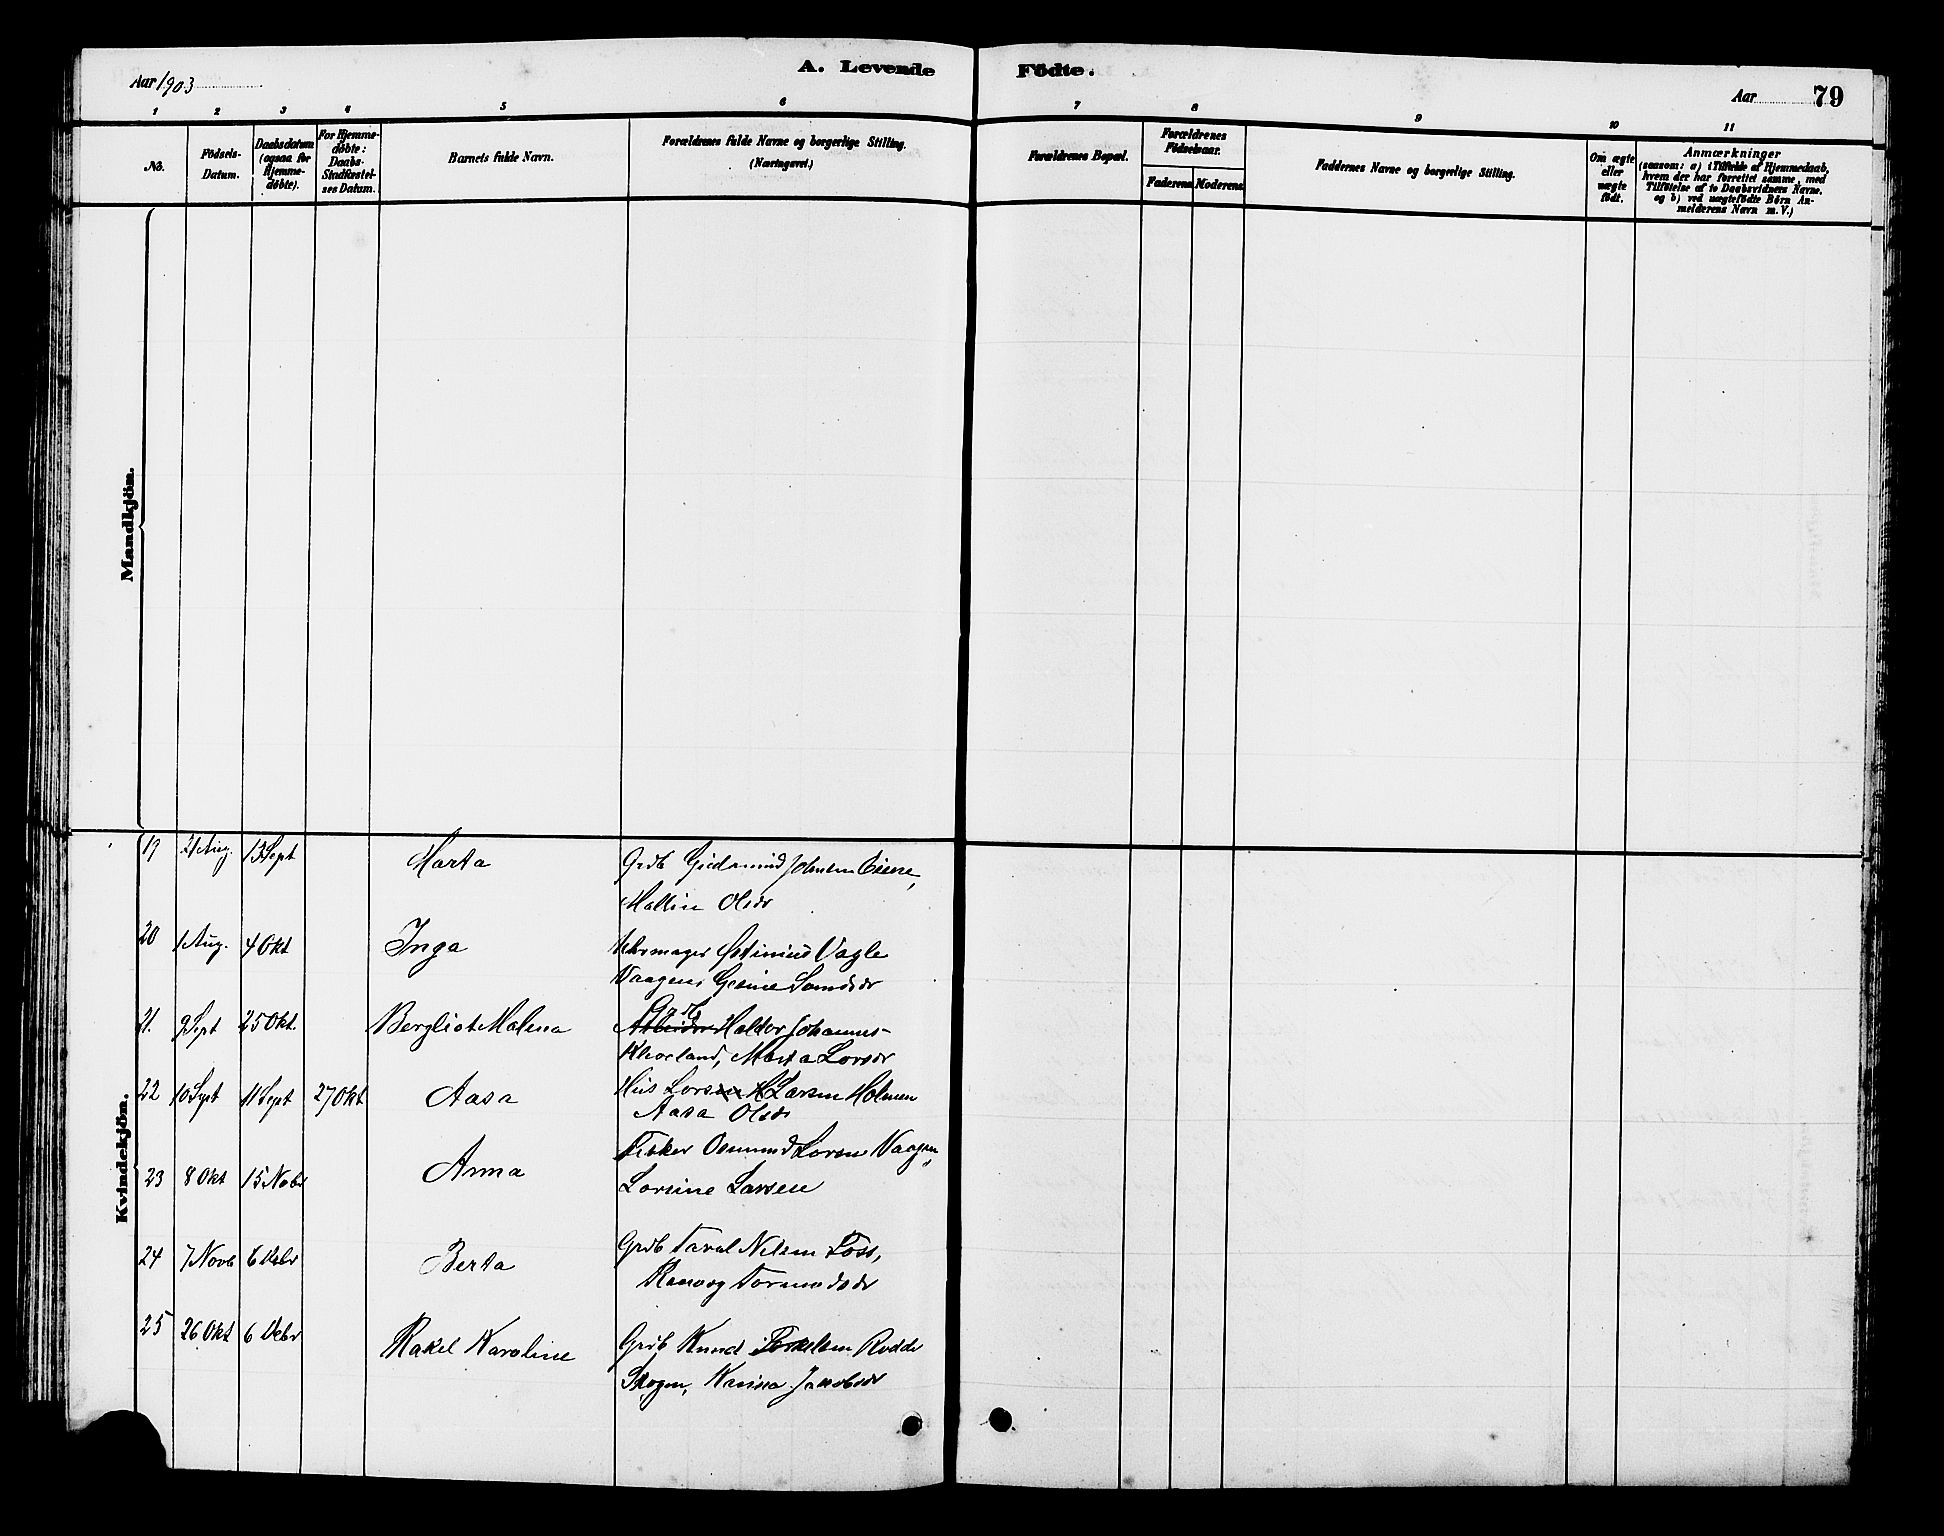 Aar 1903
A. Levende Födte.
Aar 79
1 2 3 4 5 6 7 8 9 10 11
No.
Födsels-
Datum.
Daabsdatum
(ogsaa for
Hjemme-
döbte).
For Hjemme-
döbte:
Daabs-
Stadfæstel-
ses Datum.
Barnets fulde Navn.
Forældrenes fulde Navne og borgerlige Stilling.
(Næringsvei.)
Forældrenes Bopæl.
Forældrenes
Födselsaar.
Faderens Moderens
Faddernes Navne og borgerlige Stilling.
Om ægte
eller
uægte
født.
Anmærkninger
(saasom: a) i Tilfælde af Hjemmedaab,
hvem der har forrettet samme, med
Tilföielse af to Daabsvidners Navne,
og b) ved uægtefödte Börn An-
melderens Navn m. V.)
Mandkjön.
Kvindekjön.
19 21 Aug. 13 Sept Marta Grdb Gudmund Johnsen
Mallin Olsdr
20 1 Aug. 4 Okt Inga Vagle
Vaagen, Gesine
21. 9 Sept 25 Okt. Bergliot Malena Grdb
Arbeider Haldor Johannes-
Marta Larsdr
22 10 Sept 11 Sept 27 Okt Aasa Hus Larsen H Larsen Holmen
Aasa Olsdr
23 8 Okt 15 Nobr Anna Fisker Osmund Larsen Vaagen,
Larsine Larsen
24 7 Novb 6 Debr Berta Grdb Taral Nilsen Foss,
Ranveig
25 26 Okt 6 Debr Rakel Karoline Grdb Knud Torkelsen Rodde
Skogen, Jakobsdr